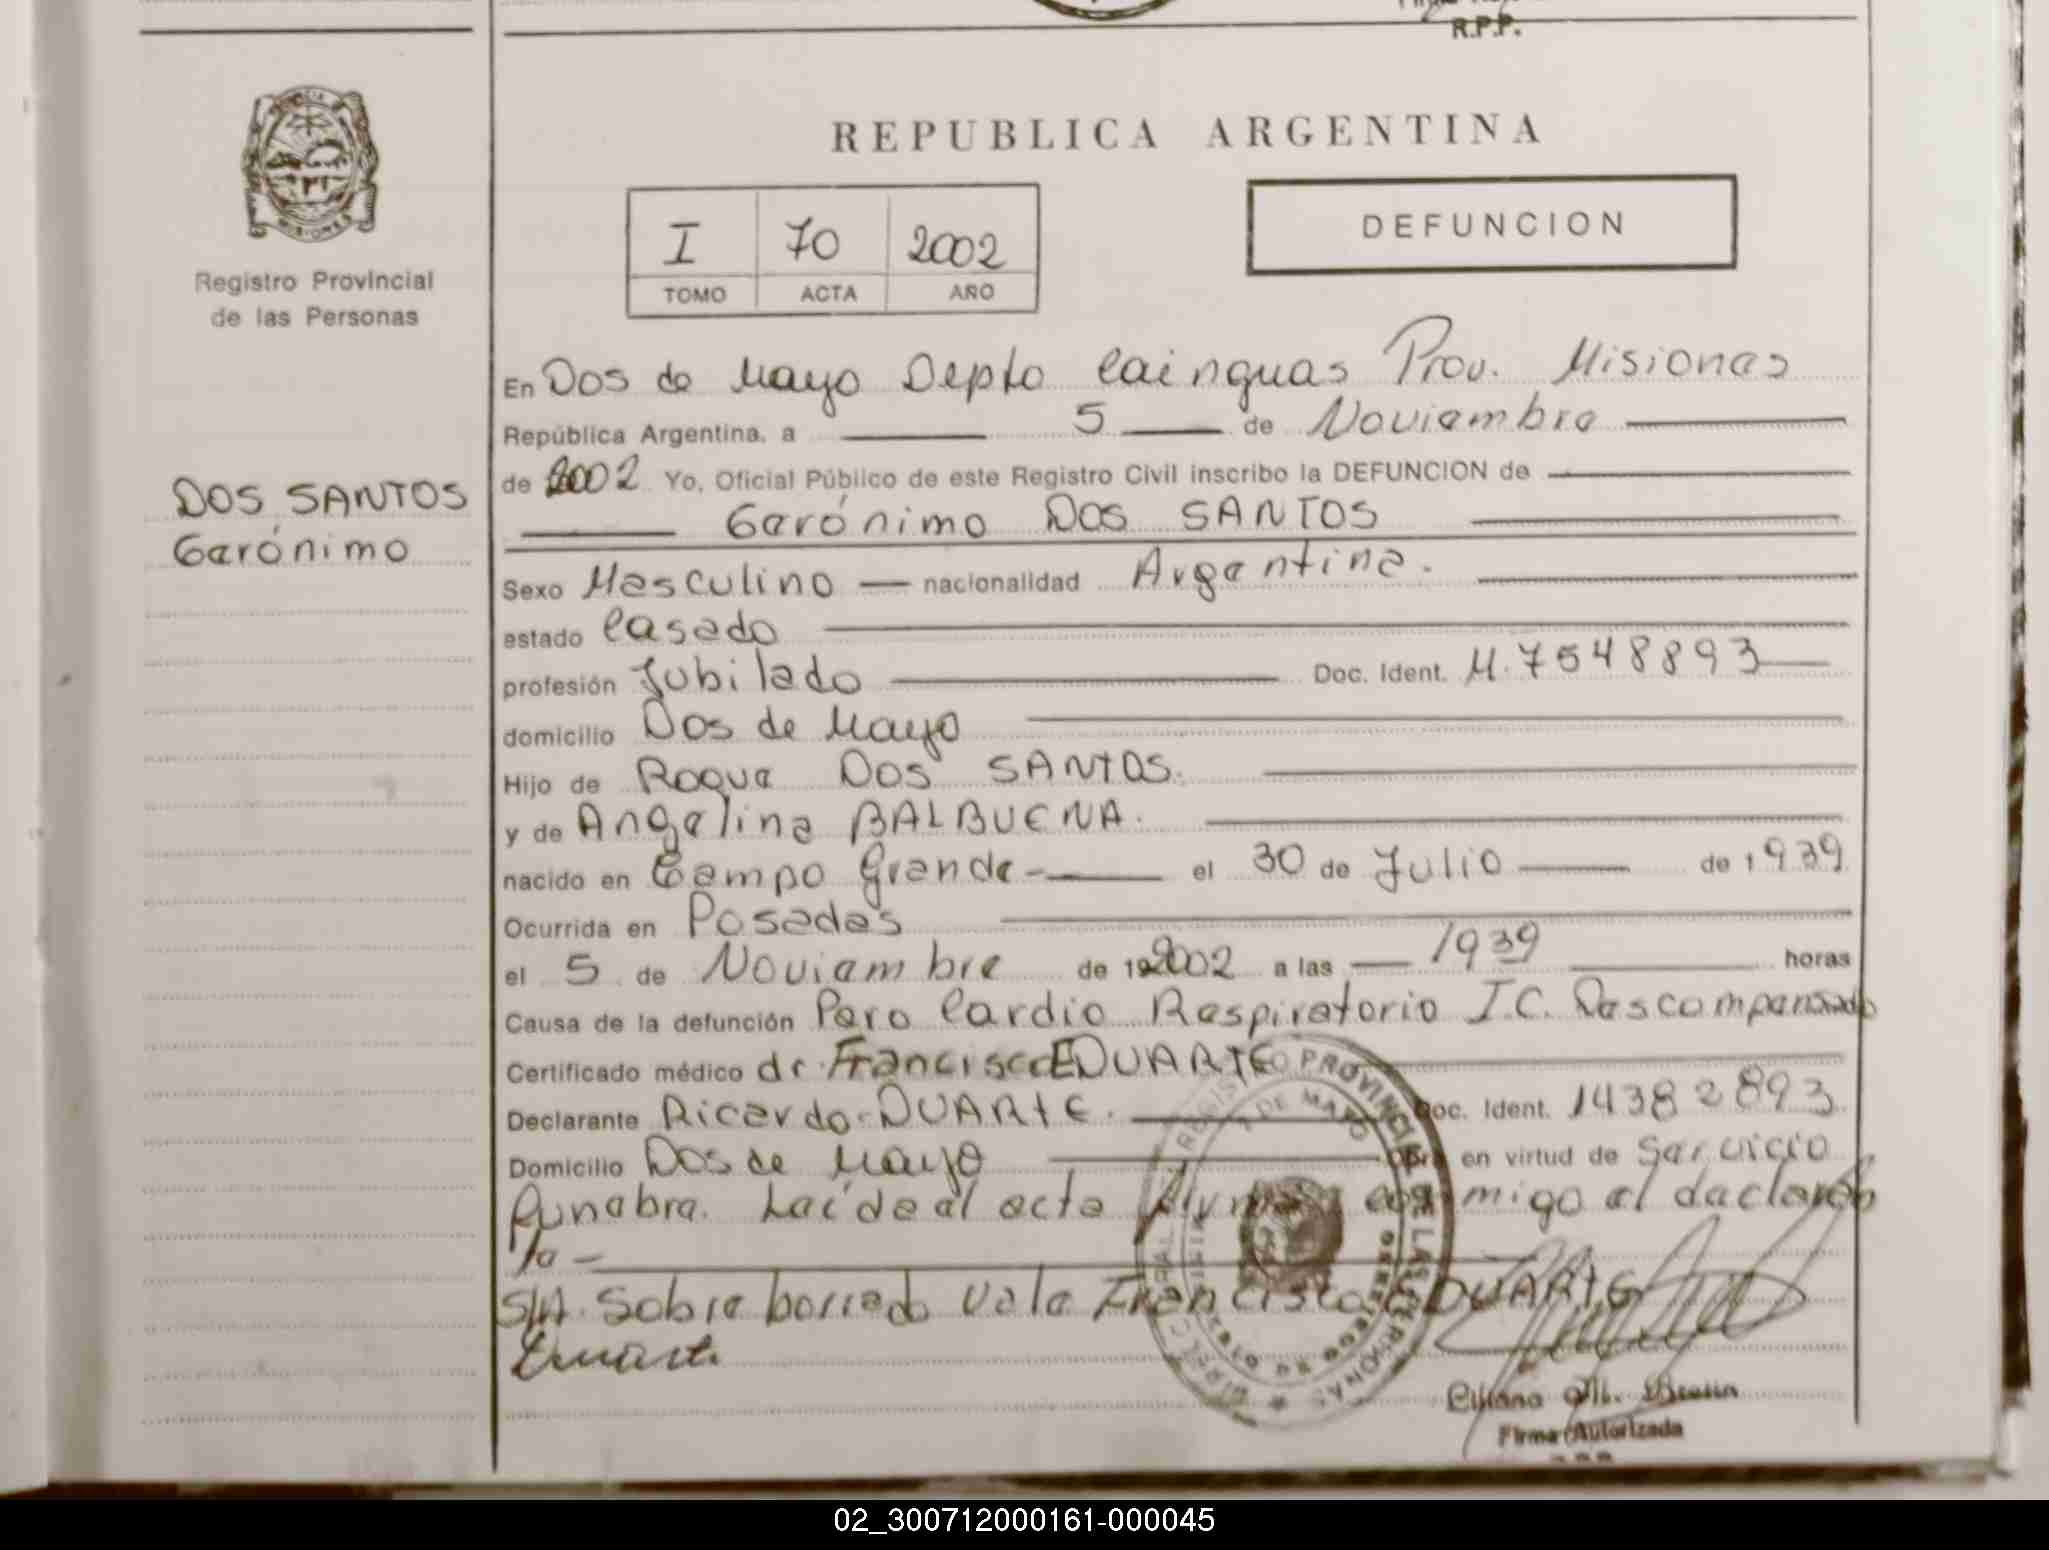 R.P.P.
REPUBLICA ARGENTINA
I 70 2002
TOMO ACTA AÑO
DEFUNCION
MISIONES
Registro Provincial
de las Personas
DOS SANTOS
Gerónimo
En Dos de Mayo Depto Cainguas Prov. Misiones
República Argentina, a 5 de Noviembre
de 2002 Yo, Oficial Público de este Registro Civil inscribo la DEFUNCION de
Gerónimo DOS SANTOS
Sexo Masculino nacionalidad Argentina.
estado Casado
profesión Jubilado Doc. Ident. M. 7548893
domicilio Dos de Mayo
Hijo de Roque DOS SANTOS.
y de Angelina BALBUENA.
nacido en Campo Grande el 30 de Julio de 1939
Ocurrida en Posadas
el 5 de Noviembre de 192002 a las 1939 horas
Causa de la defunción Paro Cardio Respiratorio I.C. Descompensado
Certificado médico dr. Francisco E DUARTE
Declarante Ricardo DUARTE. Doc. Ident. 14382893
Domicilio Dos de Mayo Obra en virtud de Servicio
Funebre. Leída el acta firma conmigo el declaran
te
S/A. Sobre borrado Vale Francisco E DUARTE
Firma Autorizada
02_300712000161-000045